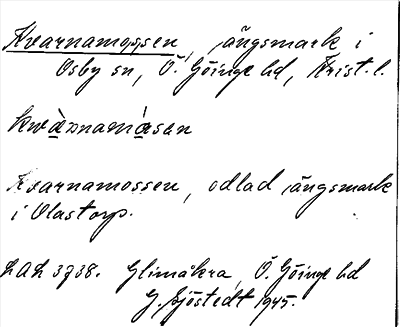 Kvarnamossen, ängsmark i
Osby sn, Ö. Göinge hd, Krist. l.
kwàrnamåsen
Kvarnamossen, odlad ängsmark
i Olastorp.
LAL 3738. Glimåkra, Ö. Göinge hd
G. Sjöstedt 1945.